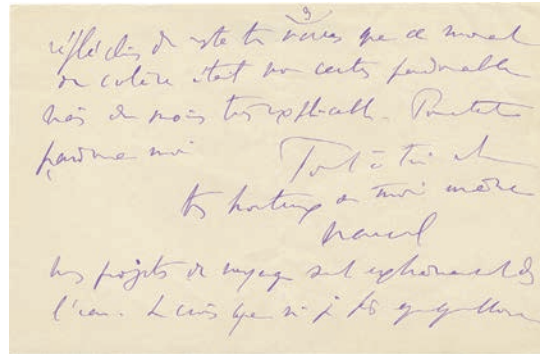 3
réfléchis du reste tu verras que ce moment
de colère était non certes pardonnable
mais du moins très explicable. Pourtant
pardonne moi
Tout à toi et
très honteux de moi même
Marcel
Mes projets de voyage sont
l'eau. Je crois que si je